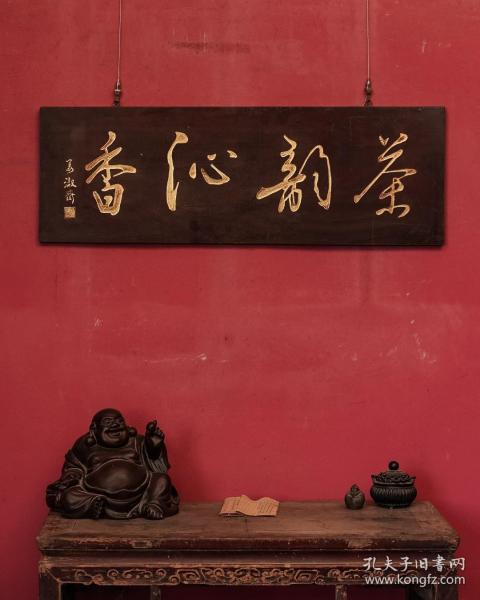 茶韵沁香
孔夫子旧书网
www.kongfz.com